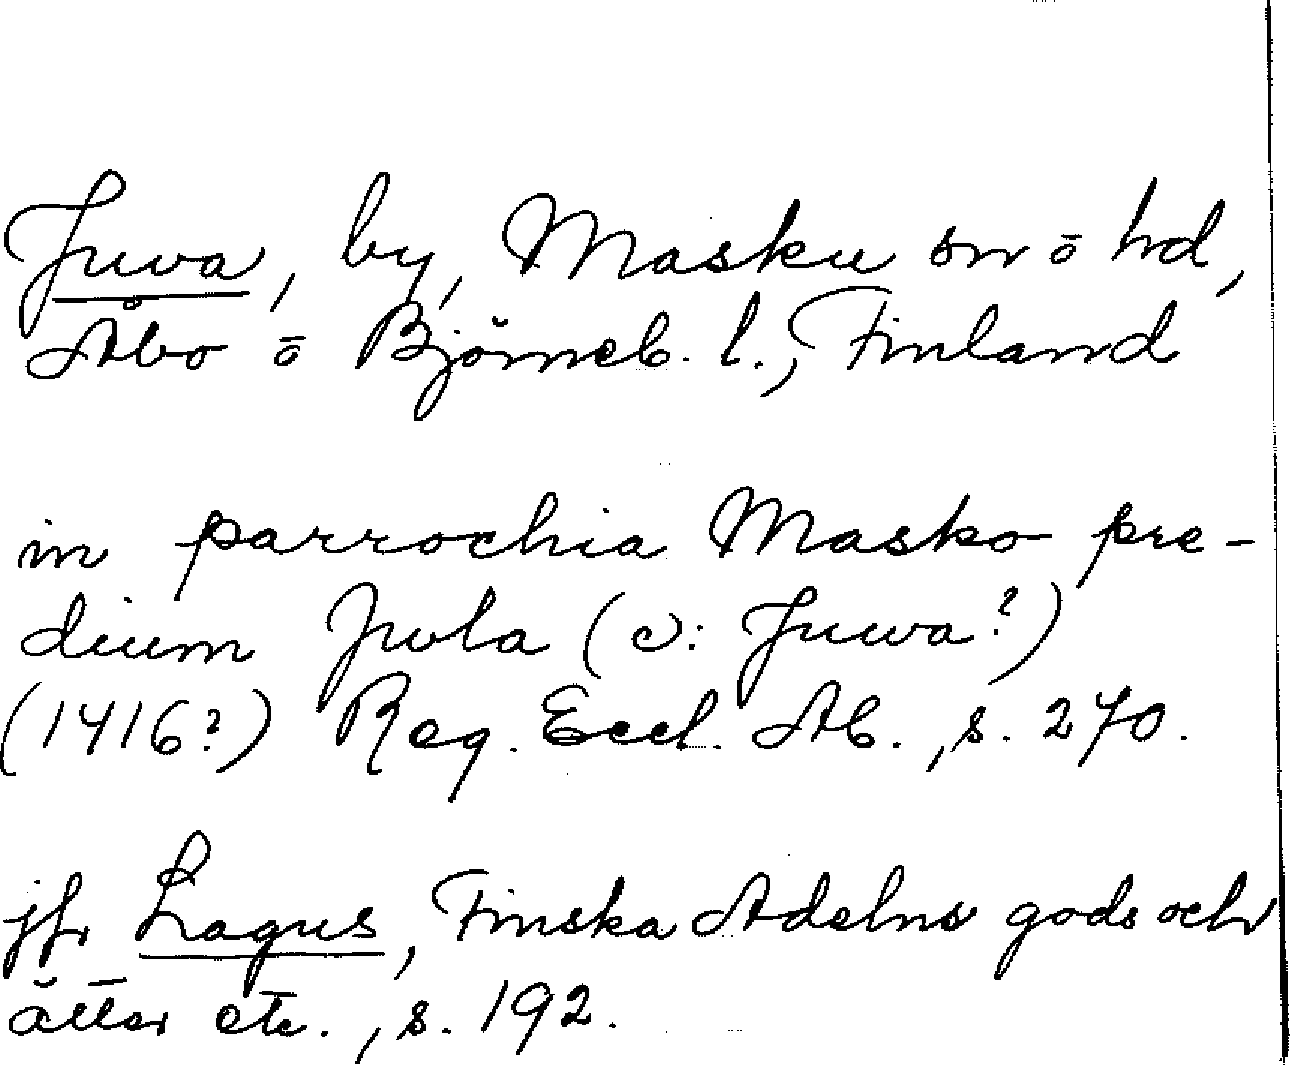 Juwa, by, Masku sn ō hd,
Åbo ō Björneb. l., Finland
in parrochia Masko pre-
dium Jwla (ɔ: Juwa?)
(1416?) Reg. Eccl. Ab., s. 270.
jfr Lagus, Finska Adelns gods och
ätter etc., s. 192.